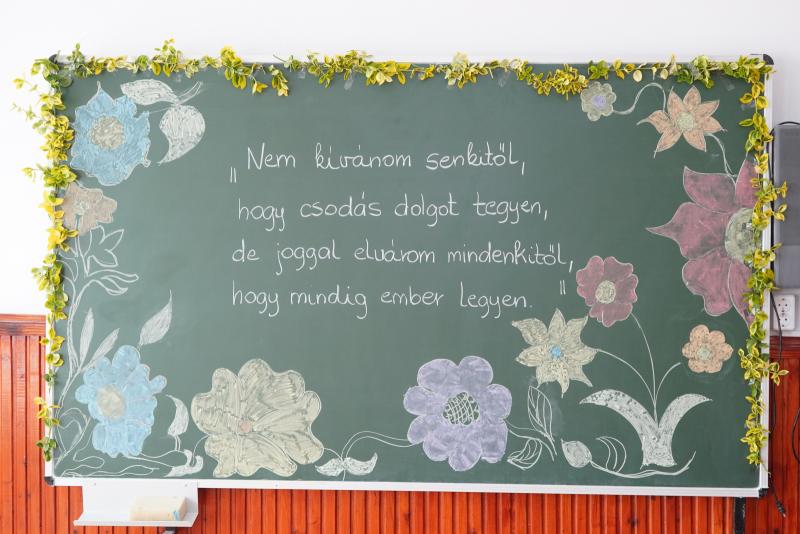 „Nem kívánom senkitől,
hogy csodás dolgot tegyen,
de joggal elvárom mindenkitől,
hogy mindig ember legyen."